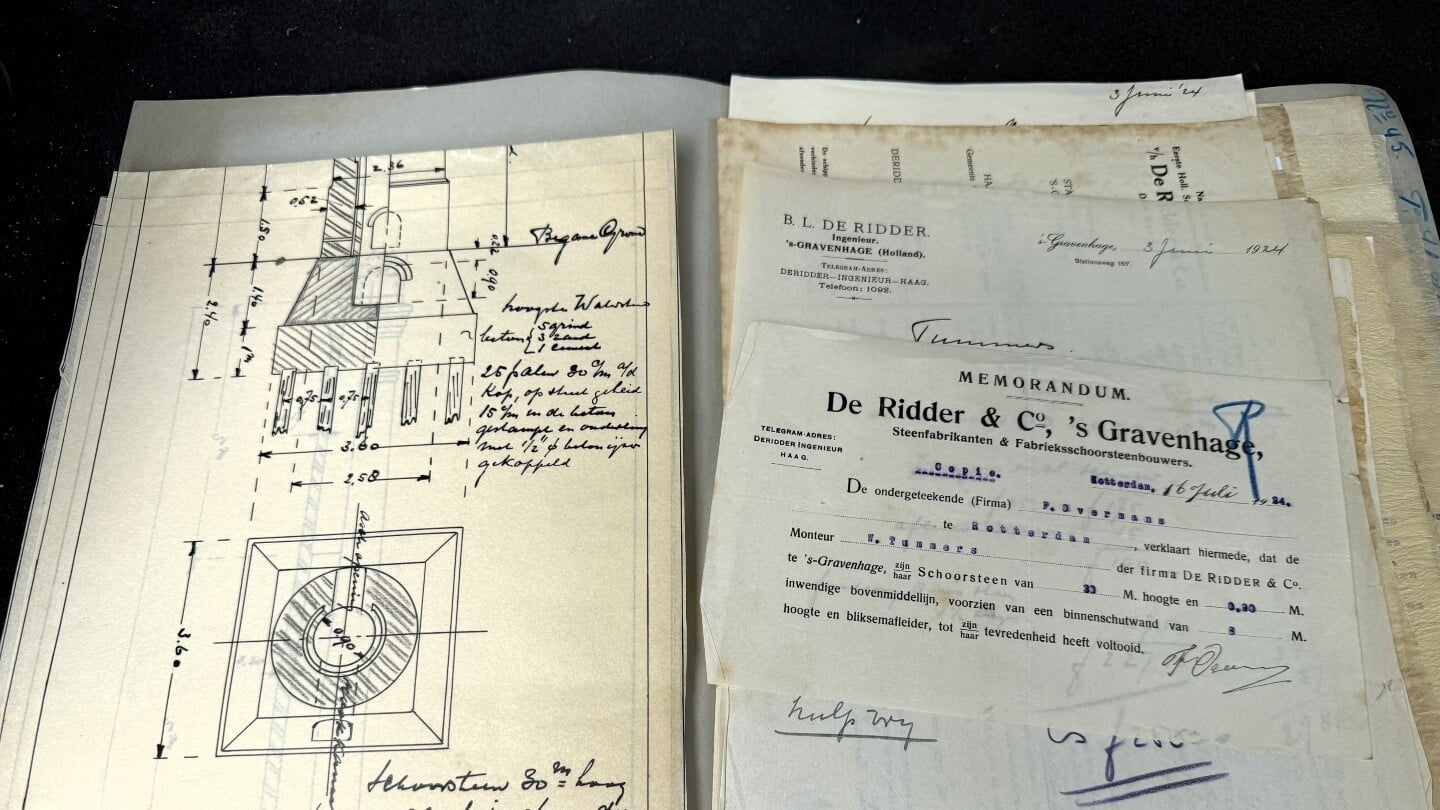 2.36
0.52
1.50
Begane Grond
0.22
0.90
2.40
1.40
1m
hoogste
beton { 5 grind
3 zand
1 cement
25 palen 30 c/m a/d
kop, op stuit geheid
15 c/m in de beton
gestampt en onderling
met 1/2" ø betonijzer
gekoppeld
0,75 0,75
3.60
2.58
opening
3.60
0.90
Schoorsteen 30 m hoog
3 Juni '24
No 45.
De
DERIDE
HA
STA
'S-G
Eerste Holl. S
v/h De R
B. L. DE RIDDER.
Ingenieur.
's-GRAVENHAGE (Holland).
TELEGRAM-ADRES:
DERIDDER—INGENIEUR—HAAG.
Telefoon: 1092.
's-Gravenhage, 3 Juni 1924
Stationsweg 157.
Tummers.
MEMORANDUM.
De Ridder & Co., 's Gravenhage,
Steenfabrikanten & Fabrieksschoorsteenbouwers.
TELEGRAM-ADRES:
DERIDDER INGENIEUR
HAAG.
Copie.
Rotterdam, 16 Juli 1924.
De ondergeteekende (Firma) F. Overmans
te Rotterdam, verklaart hiermede, dat de
Monteur W. Tummers der firma DE RIDDER & Co.
te 's-Gravenhage, zijn/haar Schoorsteen van 30 M. hoogte en 0,90 M.
inwendige bovenmiddellijn, voorzien van een binnenschutwand van 8 M.
hoogte en bliksemafleider, tot zijn/haar tevredenheid heeft voltooid.
hulp vrij